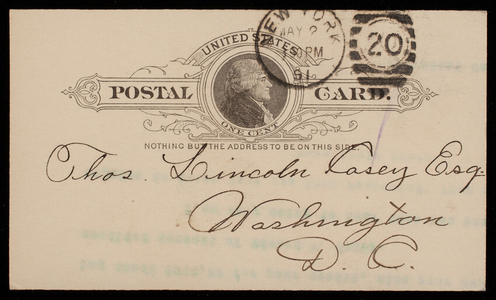 NEW YORK
MAY 2
PM
91
20
UNITED STATES
POSTAL CARD.
ONE CENT
NOTHING BUT THE ADDRESS TO BE ON THIS SIDE.
Thos Lincoln Casey Esq.
Washington
D. C.